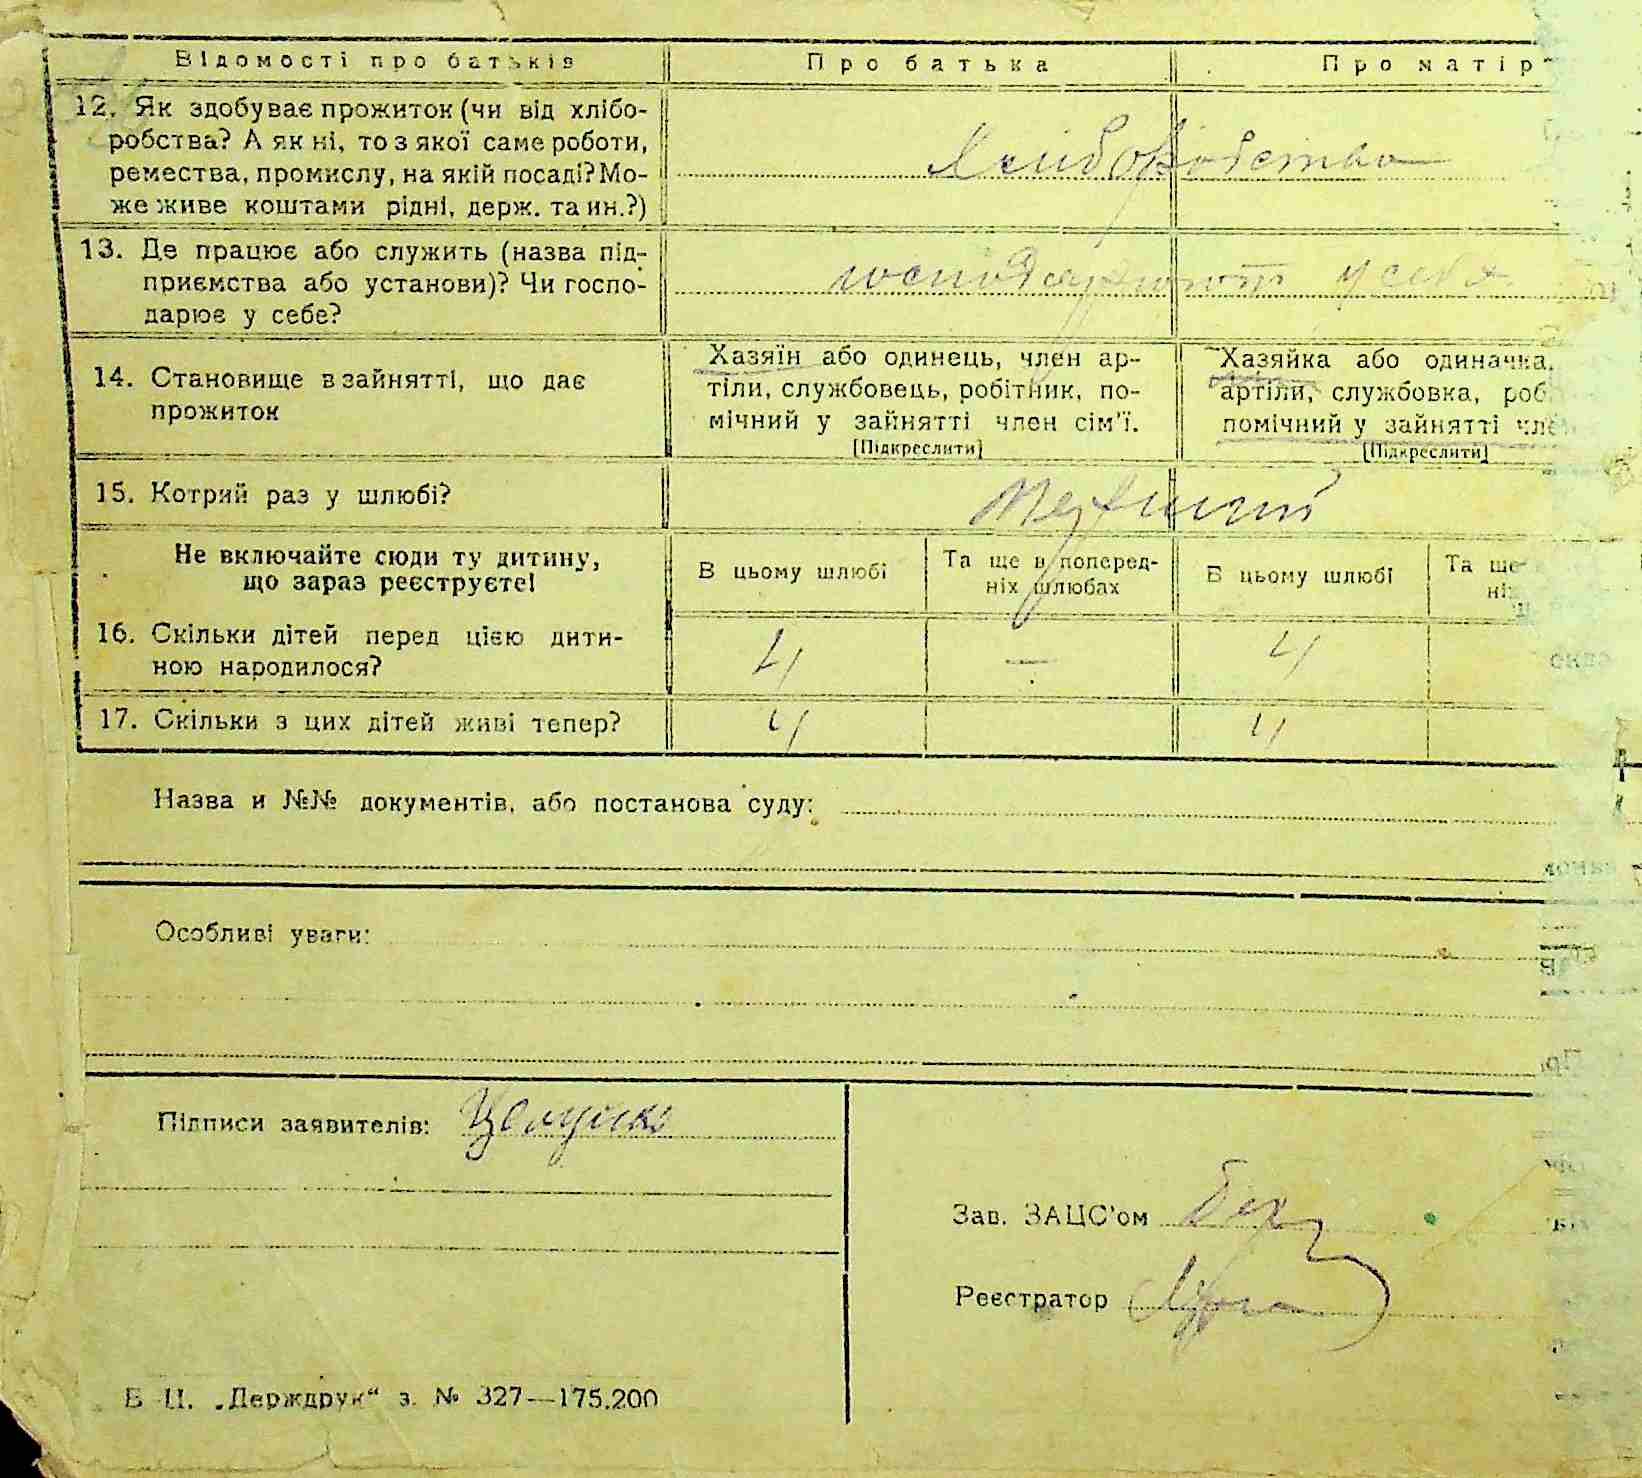 Відомості про батьків
Про батька
Про матір
12. Як здобуває прожиток (чи від хлібо-
робства? А як ні, то з якої саме роботи,
ремества, промислу, на якій посаді? Мо-
же живе коштами рідні, держ. та ин.?)
Хліборобство
13. Де працює або служить (назва під-
приємства або установи)? Чи госпо-
дарює у себе?
господарюют у себе
14. Становище в зайнятті, що дає
прожиток
Хазяїн або одинець, член ар-
тіли, службовець, робітник, по-
мічний у зайнятті член сім'ї.
[Підкреслити]
Хазяйка або одиначка,
артіли, службовка, роб
помічний у зайнятті член
[Підкреслити]
15. Котрий раз у шлюбі?
Не включайте сюди ту дитину,
що зараз реєструєте!
В цьому шлюбі
Та ще в поперед-
ніх шлюбах
В цьому шлюбі
Та ще
ніх
16. Скільки дітей перед цією дити-
ною народилося?
4 — 4
17. Скільки з цих дітей живі тепер?
4 4
Назва и №№ документів, або постанова суду:
Особливі уваги:
Підписи заявителів:
Зав. ЗАЦС'ом
Реєстратор
Б Ц. „Держдрук“ з. № 327—175.200